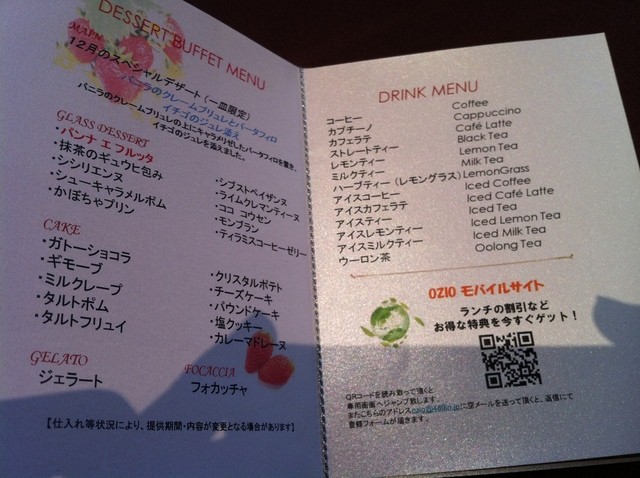 DESSERT BUFFET MENU
MAIN
12月のスペシャルデザート(一皿限定)
バニラのクレームブリュレとパータフィロ
イチゴのジュレ添え
バニラのクレームブリュレの上にキャラメリゼしたパータフィロを置き、
イチゴのジュレを添えました。
GLASS DESSERT
・パンナ エ フルッタ
・抹茶のギュウヒ包み
・シシリエンヌ
・シューキャラメルポム
・かぼちゃプリン
・シブストベイザンヌ
・ライムクレマンティーヌ
・ココ コウセン
・モンブラン
・ティラミスコーヒーゼリー
CAKE
・ガトーショコラ
・ギモーブ
・ミルクレープ
・タルトポム
・タルトフリュイ
・クリスタルポテト
・チーズケーキ
・パウンドケーキ
・塩クッキー
・カレーマドレーヌ
GELATO
ジェラート
FOCACCIA
フォカッチャ
【仕入れ等状況により、提供期間・内容が変更となる場合があります】
DRINK MENU
コーヒー Coffee
カプチーノ Cappuccino
カフェラテ Café Latte
ストレートティー Black Tea
レモンティー Lemon Tea
ミルクティー Milk Tea
ハーブティー(レモングラス) LemonGrass
アイスコーヒー Iced Coffee
アイスカフェラテ Iced Café Latte
アイスティー Iced Tea
アイスレモンティー Iced Lemon Tea
アイスミルクティー Iced Milk Tea
ウーロン茶 Oolong Tea
OZIO モバイルサイト
ランチの割引など
お得な特典を今すぐゲット!
QRコードを読み取って頂くと
専用画面へジャンプ致します。
またこちらのアドレスに空メールを送って頂くと、返信にて
登録フォームが届きます。